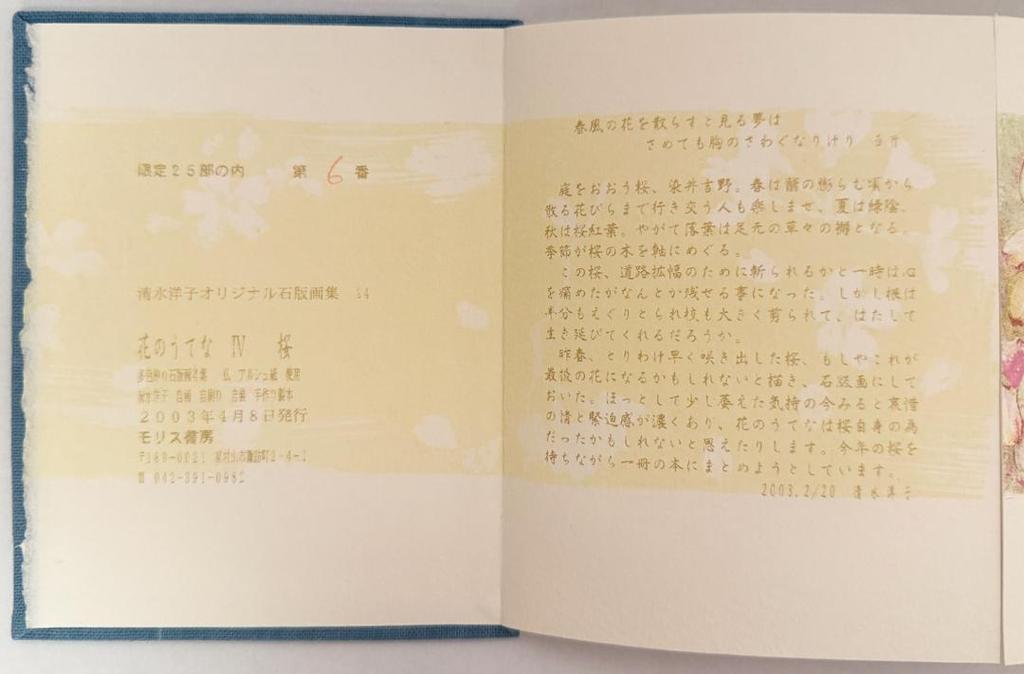 限定25部の内 第 6 番
清水洋子オリジナル石版画集 24
花のうてな Ⅳ 桜
多色刷り石版画4葉 仏 アルシュ紙 使用
清水洋子 自画 自刷り 自装 手作り製本
2003年4月8日発行
モリス書房
〒189-0021 東村山市諏訪町2-4-1
☎ 042-391-0982
春風の花を散らすと見る夢は
さめても胸のさわぐなりけり 西行
庭をおおう桜、染井吉野。春は蕾の膨らむ頃から
散る花びらまで行き交う人も楽しませ、夏は緑陰。
秋は桜紅葉。やがて落葉は足元の草々の褥となる。
季節が桜の木を軸にめぐる。
この桜、道路拡幅のために斬られるかと一時は心
を痛めたがなんとか残せる事になった。しかし根は
半分もえぐりとられ枝も大きく剪られて、はたして
生き延びてくれるだろうか。
昨春、とりわけ早く咲き出した桜、もしやこれが
最後の花になるかもしれないと描き、石版画にして
おいた。ほっとして少し萎えた気持の今みると哀惜
の情と緊迫感が濃くあり、花のうてなは桜自身の為
だったかもしれないと思えたりします。今年の桜を
待ちながら一冊の本にまとめようとしています。
2003.2/20 清水洋子